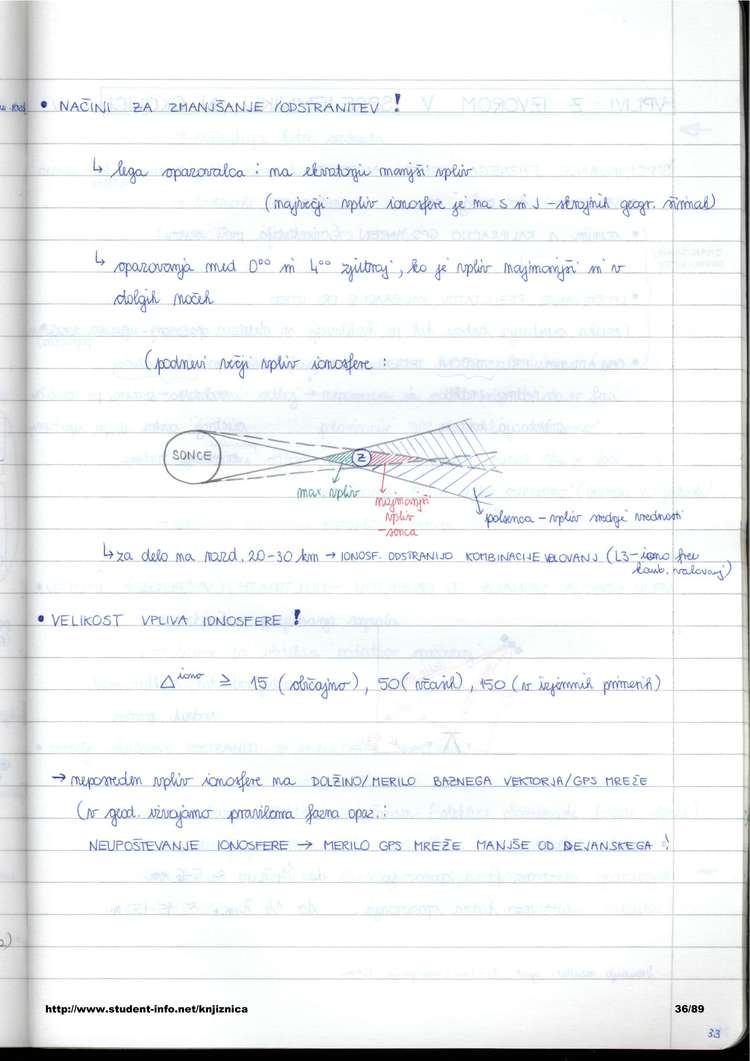 • NAČINI ZA ZMANJŠANJE/ODSTRANITEV!
↳ lega opazovalca: na ekvatorju manjši vpliv
(največji vpliv ionosfere je na S in J – skrajnih geogr. širinah)
↳ opazovanja med 0⁰⁰ in 4⁰⁰ zjutraj, ko je vpliv najmanjši in v
dolgih nočeh
(podnevi večji vpliv ionosfere:
SONCE
Z
max. vpliv
najmanjši
vpliv
sonca
polsenca – vpliv srednje vrednosti
↳ za delo na razd. 20-30 km → IONOSF. ODSTRANIJO KOMBINACIJE VALOVANJ (L3 – iono free
komb. valovanj)
• VELIKOST VPLIVA IONOSFERE!
Δ iono ≥ 15 (običajno), 50 (včasih), 150 (v izjemnih primerih)
→ neposreden vpliv ionosfere na DOLŽINO/MERILO BAZNEGA VEKTORJA/GPS MREŽE
(v geod. izvajamo praviloma fazna opaz.:
NEUPOŠTEVANJE IONOSFERE → MERILO GPS MREŽE MANJŠE OD DEJANSKEGA!
http://www.student-info.net/knjiznica
36/89
33